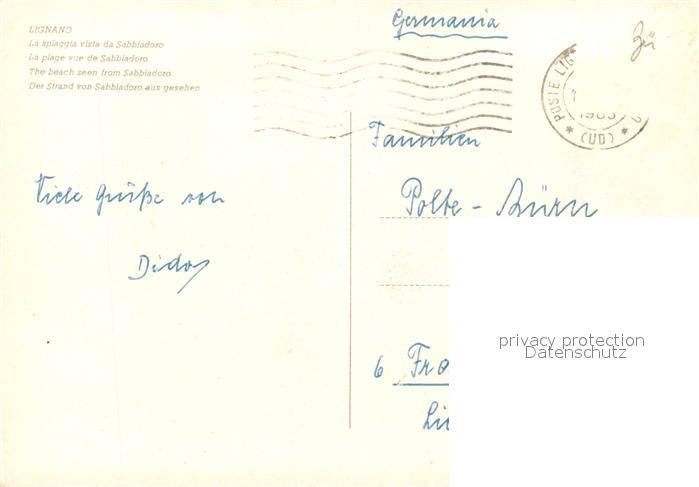 LIGNANO
La spiaggia vista da Sabbiadoro
La plage vue de Sabbiadoro
The beach seen from Sabbiadoro
Der Strand von Sabbiadoro aus gesehen
Germania
POSTE LIG
(UD)
Familien
Polte -
Viele Grüße von
privacy protection
Datenschutz
6 Fra